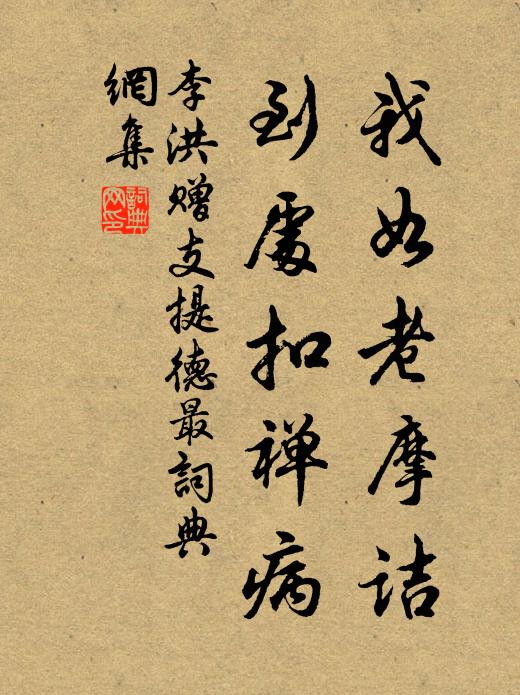 我如老摩诘
到處扣禅病
李洪赠支提德最詞典
網集
詞典
网印